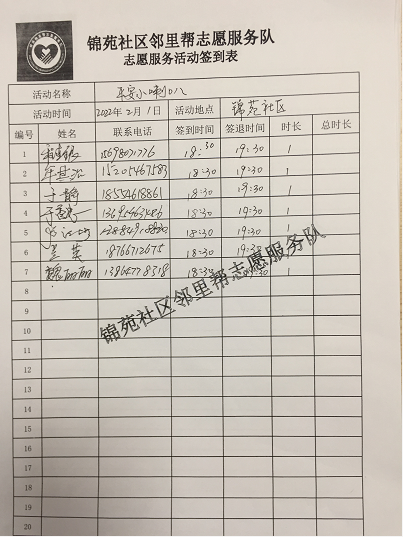 锦苑社区邻里帮志愿服务队
志愿服务活动签到表
活动名称 平安小喇叭
活动时间 2022年2月1日 活动地点 锦苑社区
编号 姓名 联系电话 签到时间 签退时间 时长 总时长
1 18:30 19:30 1
2 15205467583 18:30 19:30 1
3 于静 18554618861 18:30 19:30 1
4 18:30 19:30 1
5 18:30 19:30 1
6 兰英 18766712675 18:30 19:30 1
7 魏丽丽 13864778318 18:30 19:30 1
8
9
10
11
12
13
14
15
16
17
18
19
20
锦苑社区邻里帮志愿服务队